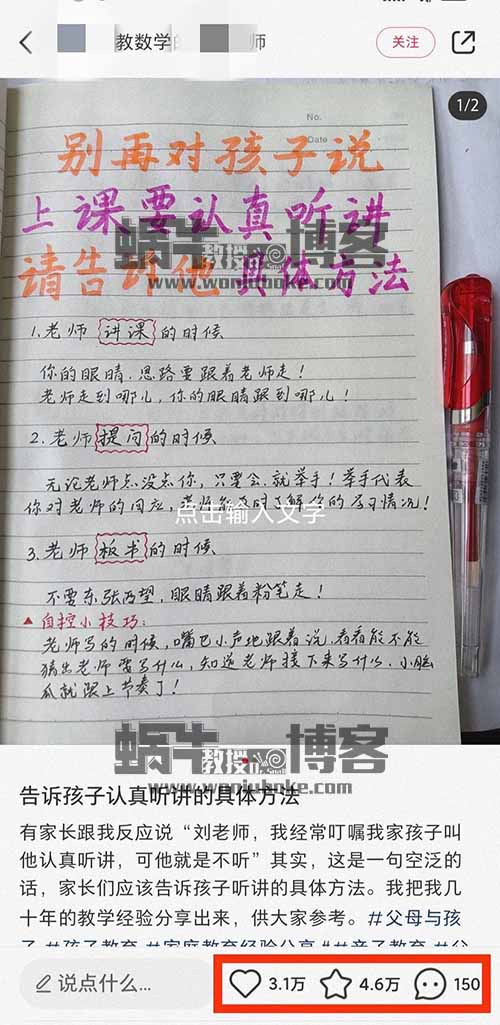 教数学
师
关注
1/2
No.
Date
别再对孩子说
上课要认真听讲
请告诉他 具体方法
蜗牛教授博客
www.woniuboke.com
1.老师讲课的时候
你的眼睛.思路要跟着老师走!
老师走到哪儿,你的眼睛跟到哪儿!
2.老师提问的时候
无论老师点没点你,只要会.就举手!举手代表
你对老师的回应,老师能及时了解你的学习情况!
点击输入文字
3.老师板书的时候
不要东张西望,眼睛跟着粉笔走!
▲自控小技巧:
老师写的时候,嘴巴小声地跟着说,看看能不能
猜出老师要写什么,知道老师接下来写什么.小脑
瓜就跟上节奏了!
蜗牛教授博客
www.woniuboke.com
告诉孩子认真听讲的具体方法
有家长跟我反应说“刘老师,我经常叮嘱我家孩子叫
他认真听讲,可他就是不听”其实,这是一句空泛的
话,家长们应该告诉孩子听讲的具体方法。我把我几
十年的教学经验分享出来,供大家参考。#父母与孩
子 #孩子教育 #家庭教育经验分享 ##亲子教育 #父
说点什么...
3.1万
4.6万
150